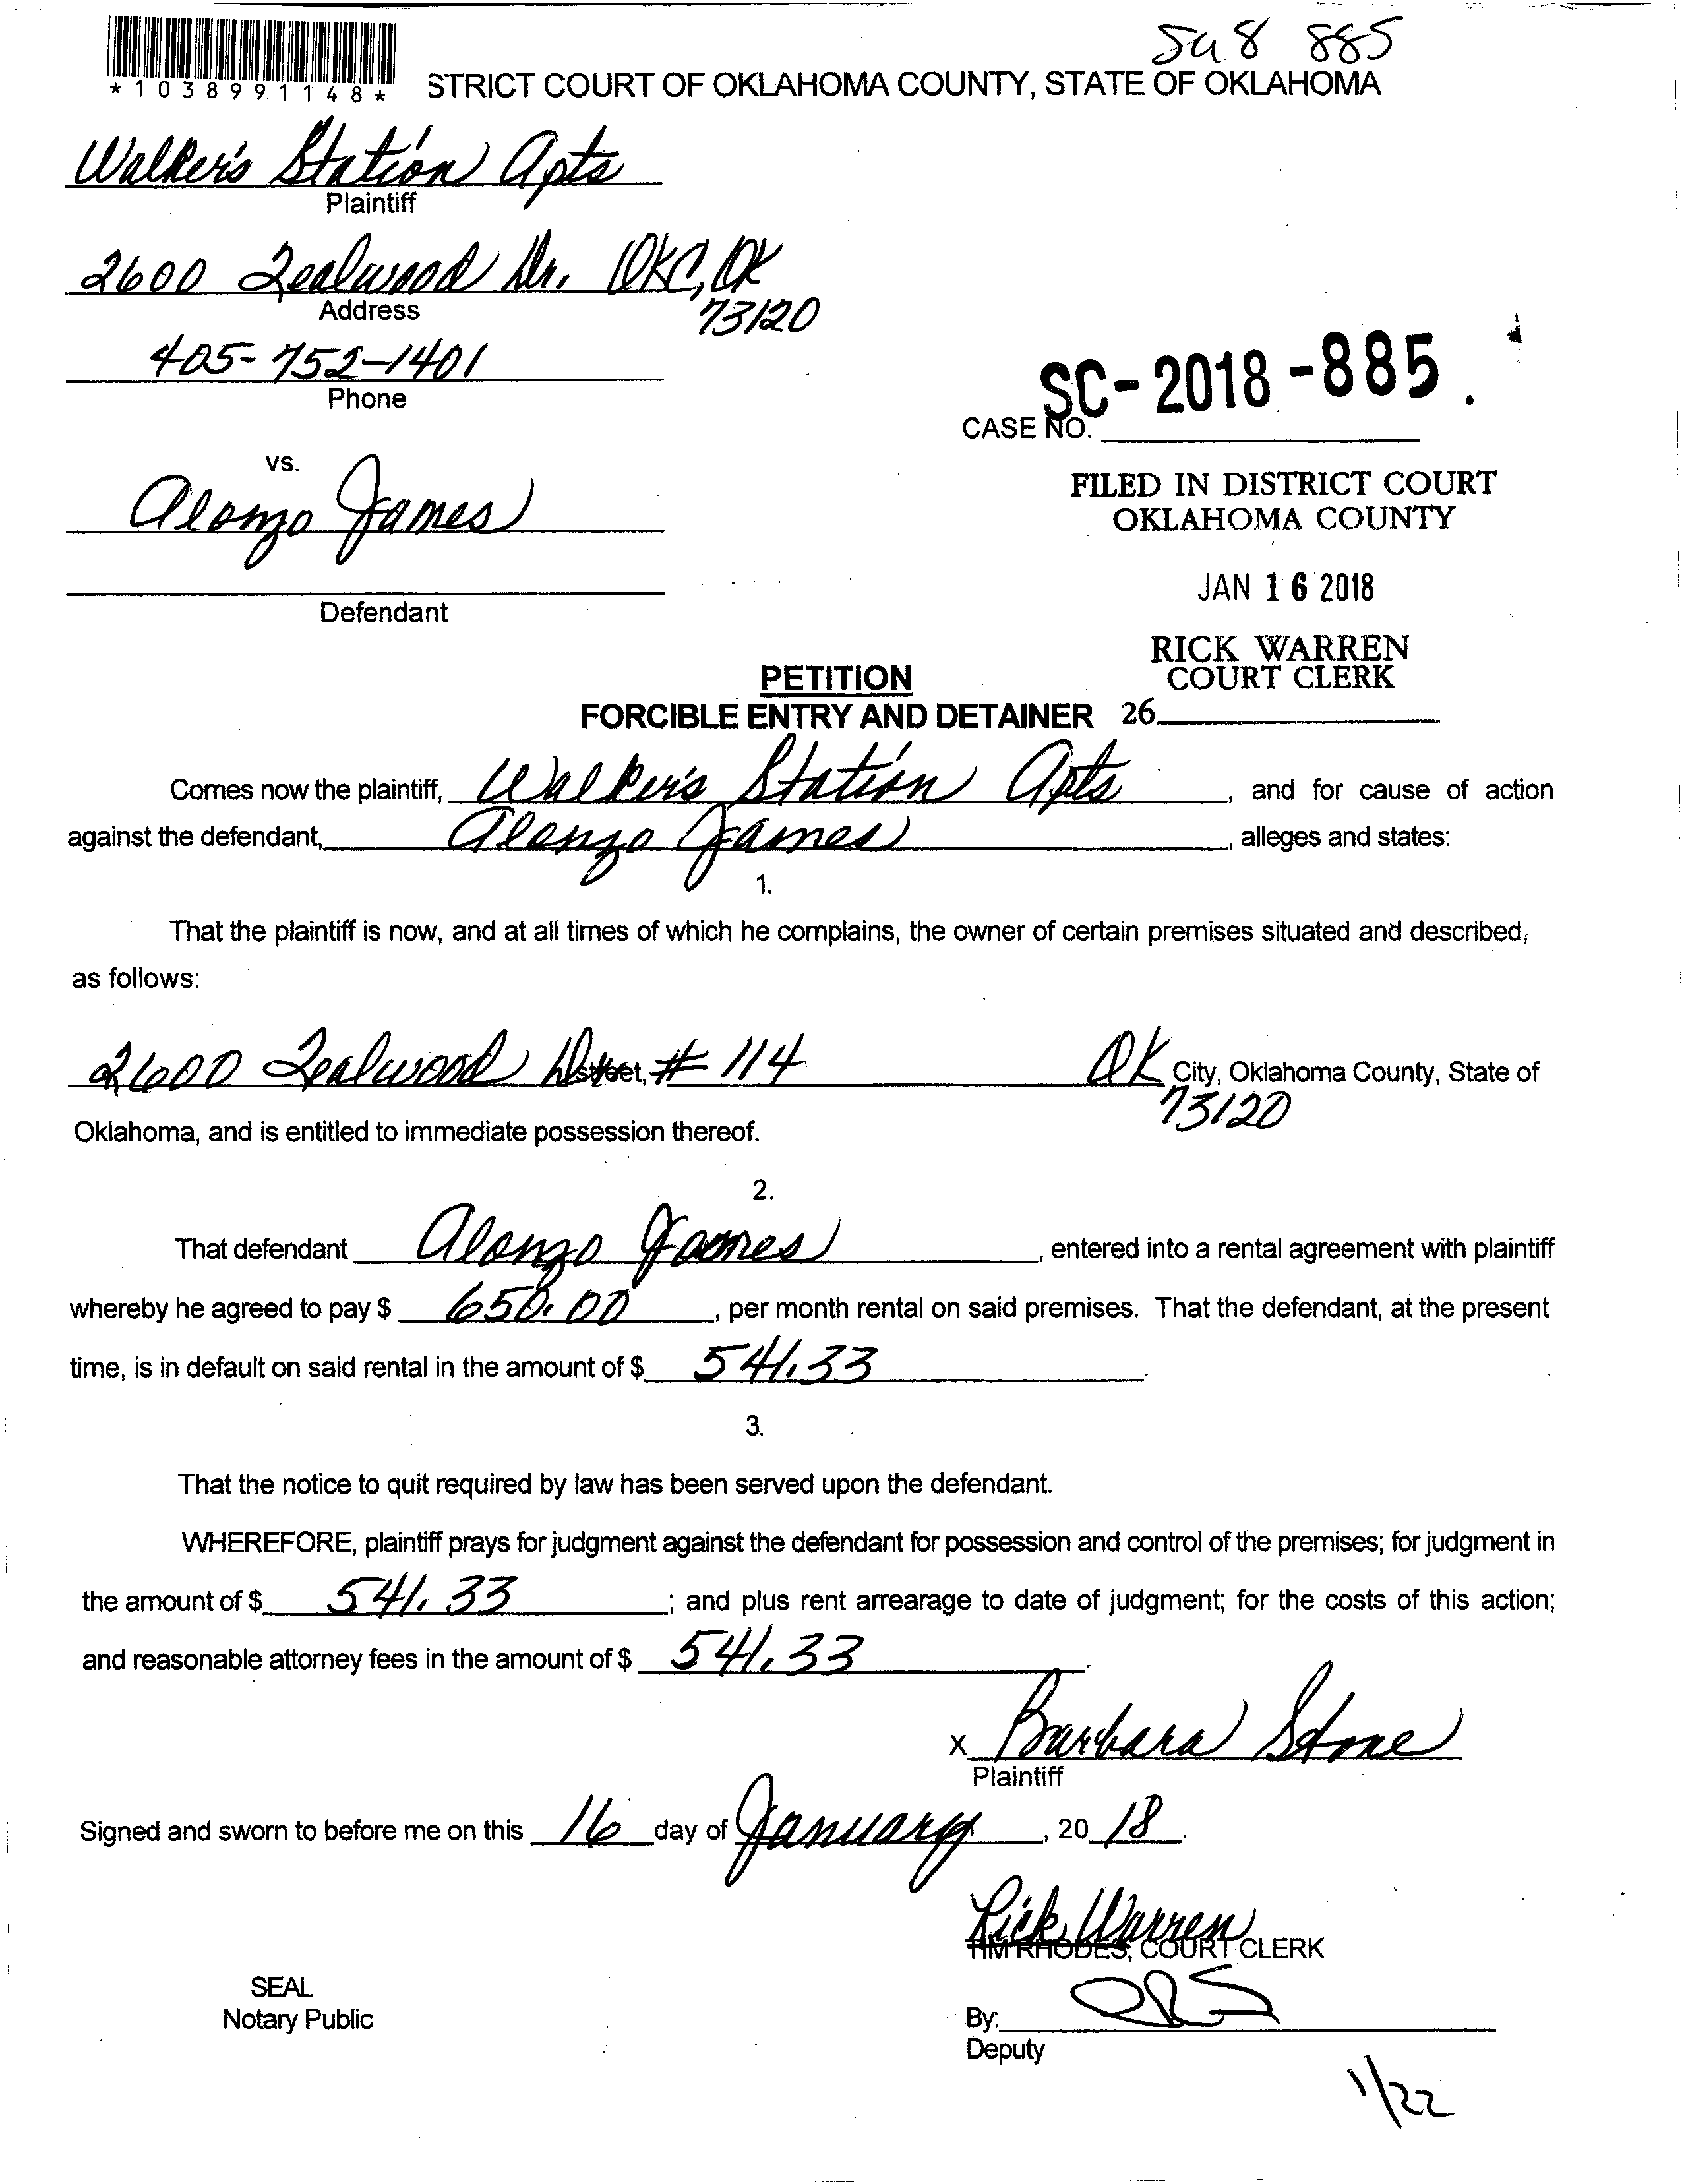 Sc18 885
*1038991148* STRICT COURT OF OKLAHOMA COUNTY, STATE OF OKLAHOMA
Walker's Station Apts
Plaintiff
2600 Tealwood Dr. OKC, OK
Address 73120
405-752-1401
Phone
SC-2018-885
CASE NO.
vs.
Alonzo James
FILED IN DISTRICT COURT
OKLAHOMA COUNTY
JAN 16 2018
Defendant
RICK WARREN
COURT CLERK
PETITION
FORCIBLE ENTRY AND DETAINER 26
Comes now the plaintiff, Walker's Station Apts, and for cause of action
against the defendant, Alonzo James, alleges and states:
1.
That the plaintiff is now, and at all times of which he complains, the owner of certain premises situated and described,
as follows:
2600 Tealwood Dr Street, # 114 OK City, Oklahoma County, State of
73120
Oklahoma, and is entitled to immediate possession thereof.
2.
That defendant Alonzo James, entered into a rental agreement with plaintiff
whereby he agreed to pay $ 650.00, per month rental on said premises. That the defendant, at the present
time, is in default on said rental in the amount of $ 541.33.
3.
That the notice to quit required by law has been served upon the defendant.
WHEREFORE, plaintiff prays for judgment against the defendant for possession and control of the premises; for judgment in
the amount of $ 541.33; and plus rent arrearage to date of judgment; for the costs of this action;
and reasonable attorney fees in the amount of $ 541.33.
X Barbara Stone
Plaintiff
Signed and sworn to before me on this 16 day of January, 20 18.
Rick Warren
TIM RHODES, COURT CLERK
SEAL
Notary Public
By:
Deputy
1/22